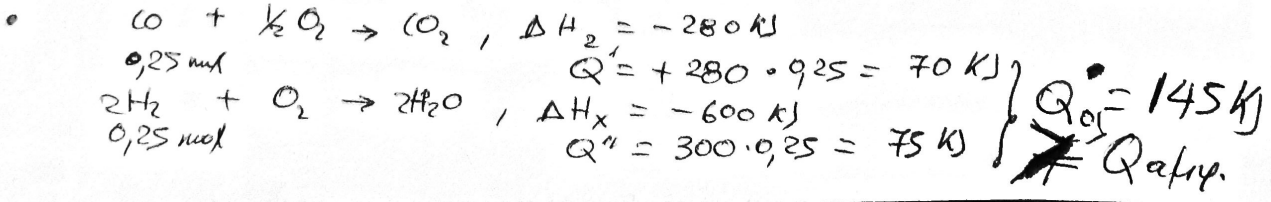 • CO + ½ O₂ → CO₂ , ΔH₂ = -280 KJ
0,25 mol Q' = + 280 · 0,25 = 70 KJ
2H₂ + O₂ → 2H₂O , ΔHₓ = -600 KJ
0,25 mol Q'' = 300 · 0,25 = 75 KJ
= 145 KJ